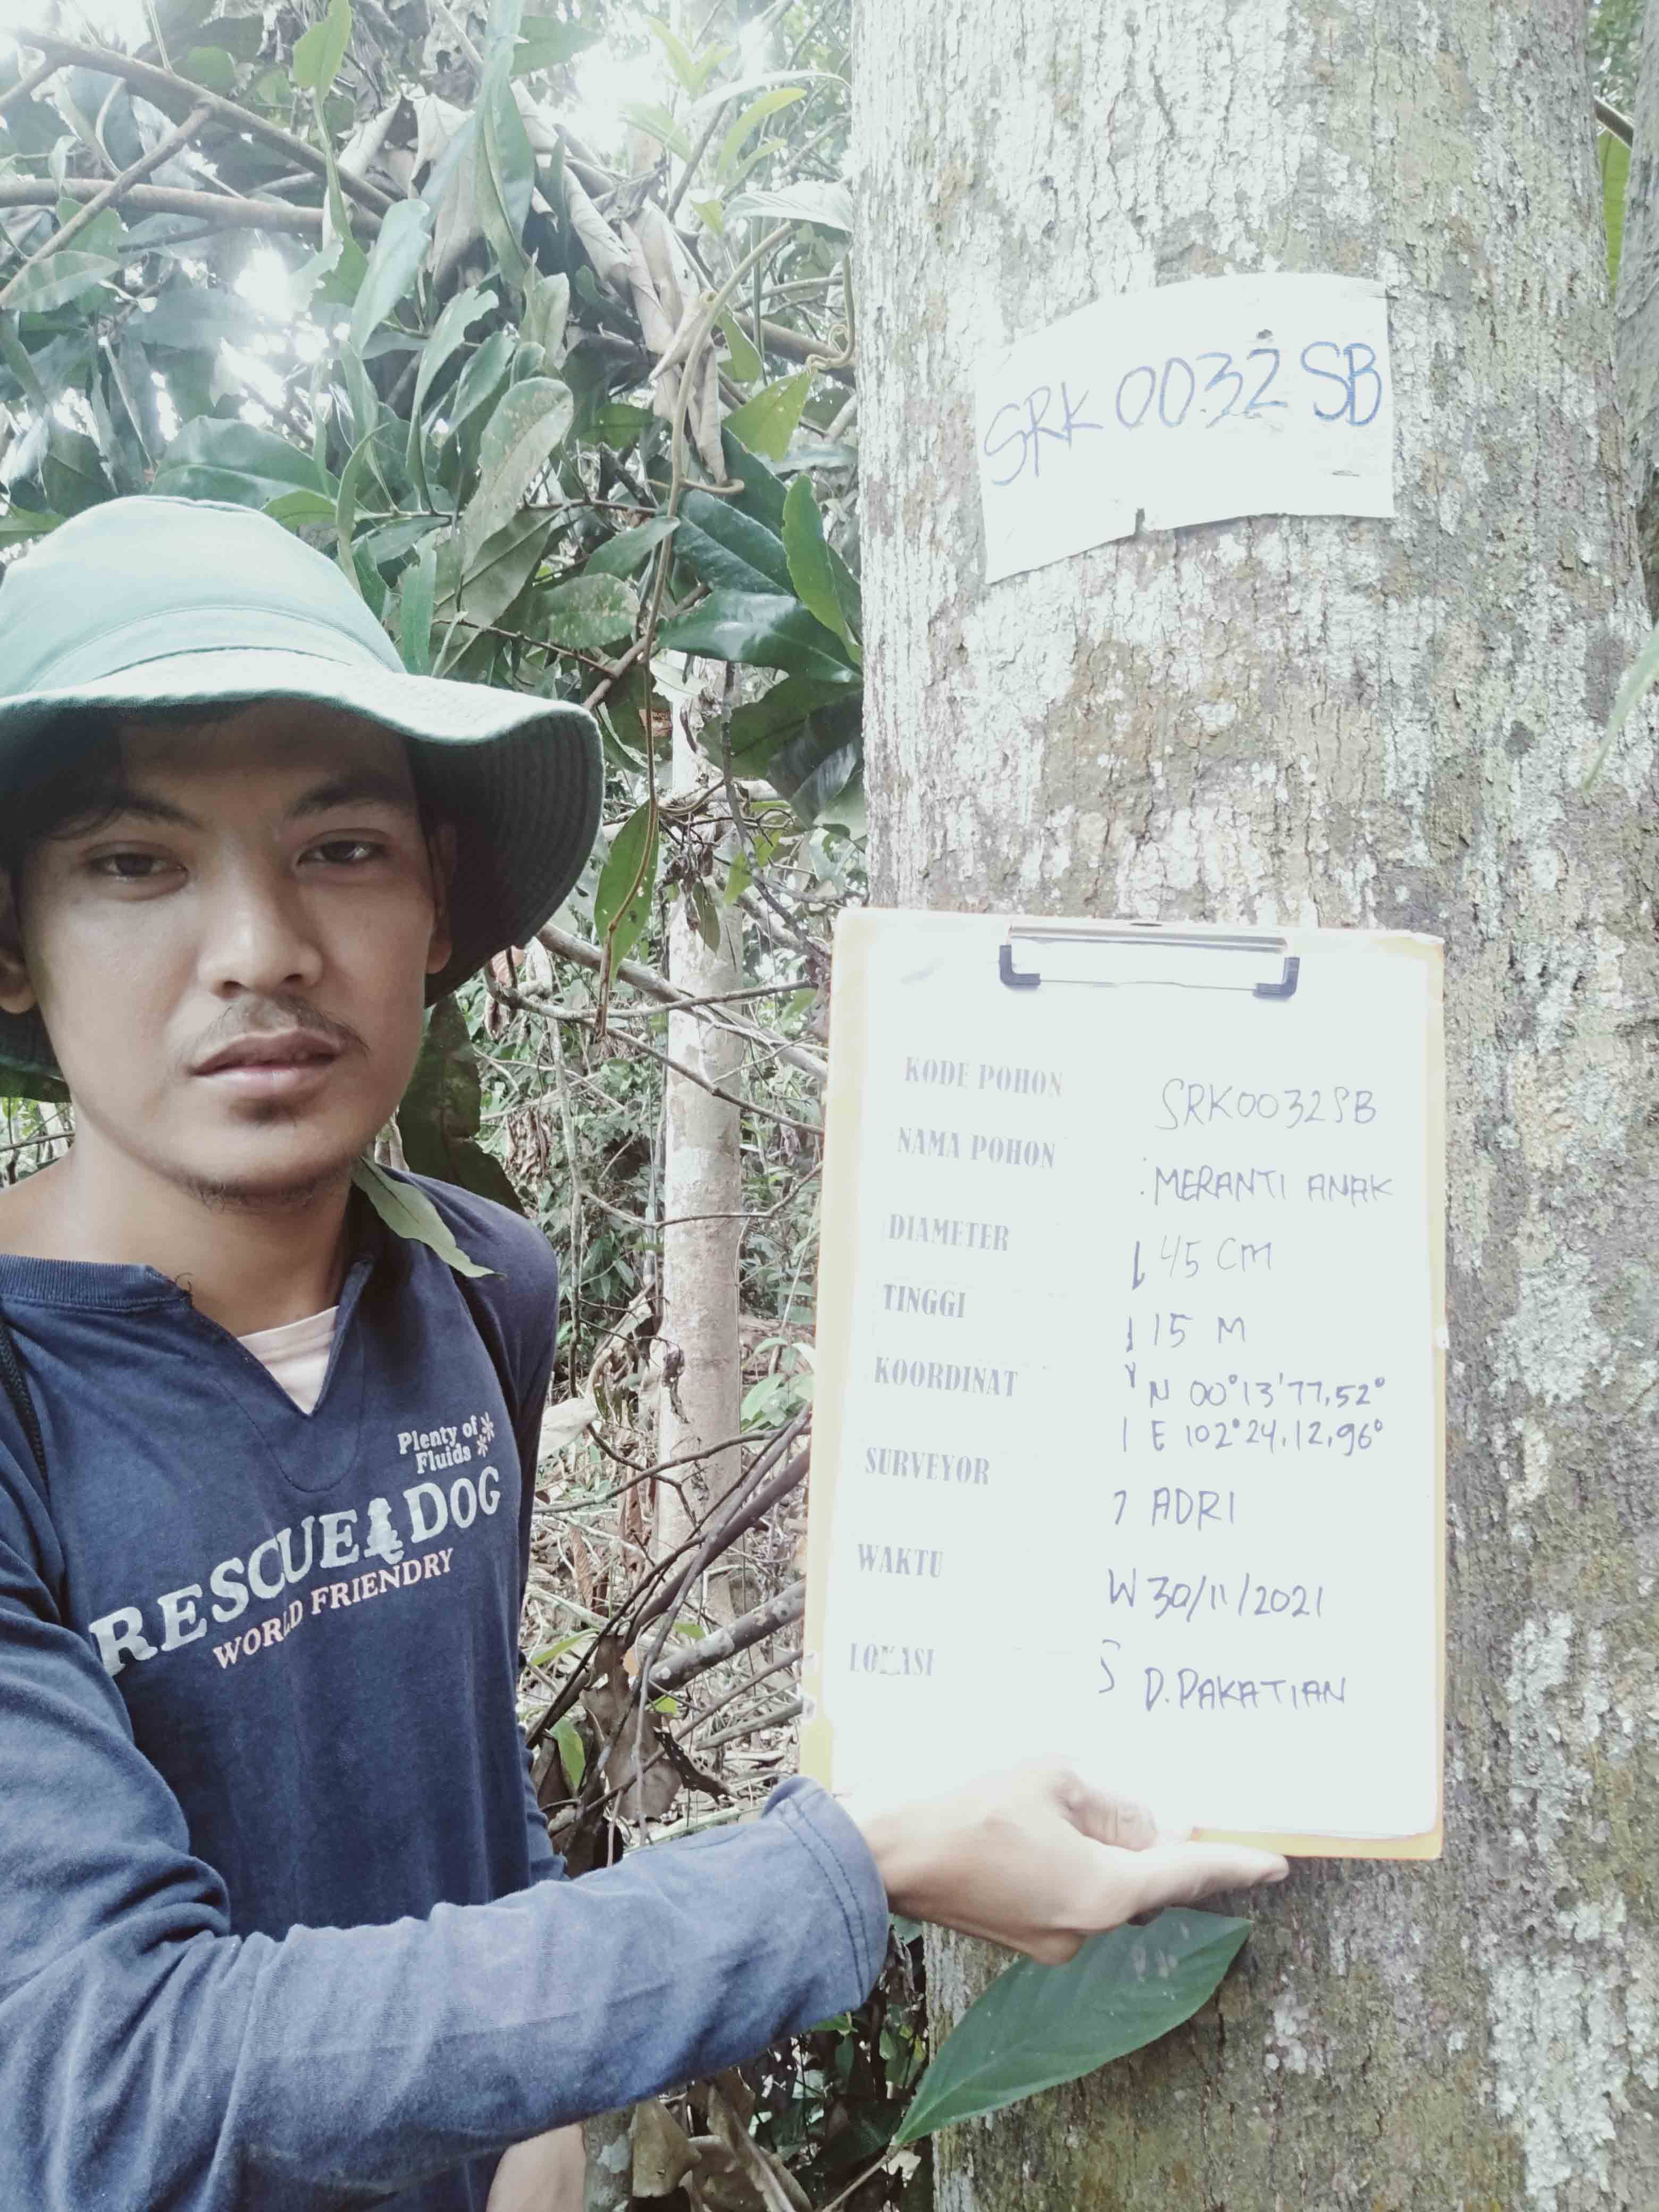 SRK 0032 SB
KODE POHON SRK0032SB
NAMA POHON : MERANTI ANAK
DIAMETER 45 CM
TINGGI 15 M
KOORDINAT N 00°13'77,52°
E 102°24,12,96°
SURVEYOR ADRI
WAKTU 30/11/2021
LOKASI D.PAKATIAN
Plenty of
Fluids
RESCUE DOG
WORLD FRIENDRY